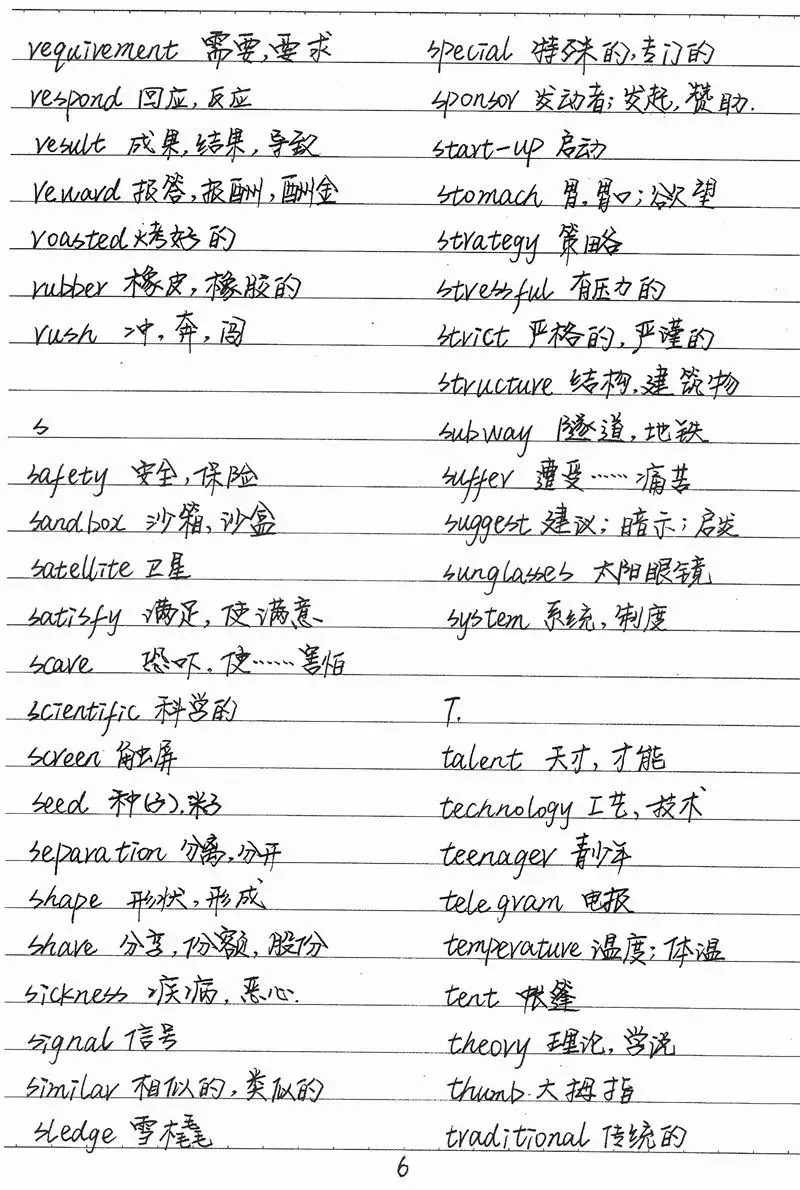 requirement 需要,要求
respond 回应,反应
result 成果,结果,导致
reward 报答,报酬,酬金
roasted 烤好的
rubber 橡皮,橡胶的
rush 冲,奔,闯
s
safety 安全,保险
sandbox 沙箱,沙盒
satellite 卫星
satisfy 满足,使满意
scare 恐吓,使……害怕
scientific 科学的
screen 触屏
seed 种(子),籽
separation 分离,分开
shape 形状,形成
share 分享,份额,股份
sickness 疾病,恶心.
signal 信号
similar 相似的,类似的
sledge 雪橇
special 特殊的,专门的
sponsor 发动者;发起,赞助.
start-up 启动
stomach 胃,胃口;欲望
strategy 策略
stressful 有压力的
strict 严格的,严谨的
structure 结构,建筑物
subway 隧道,地铁
suffer 遭受……痛苦
suggest 建议;暗示;启发
sunglasses 太阳眼镜
system 系统,制度
T.
talent 天才,才能
technology 工艺,技术
teenager 青少年
telegram 电报
temperature 温度;体温
tent 帐篷
theory 理论,学说
thumb 大拇指
traditional 传统的
6